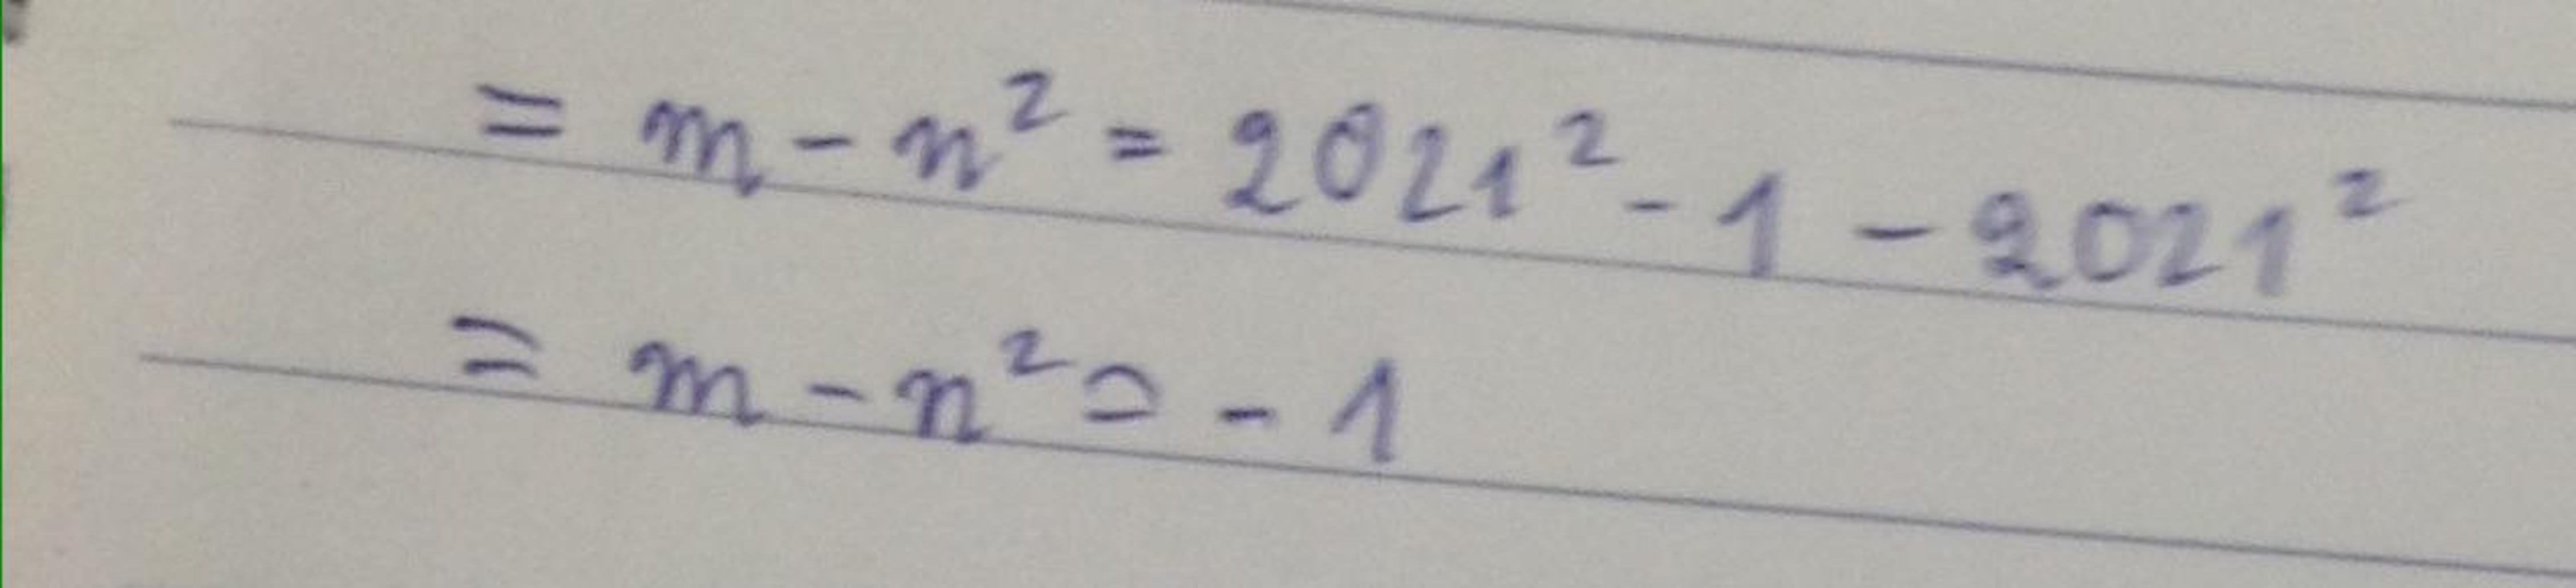 = m - n² = 2021² - 1 - 2021²
= m - n² = - 1